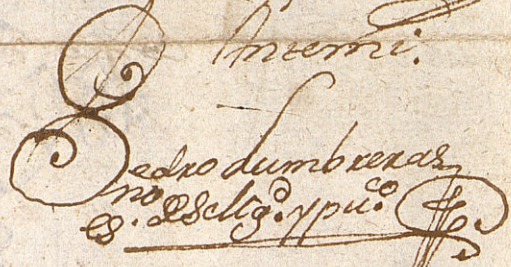 Antemi.
Pedro Lumbreras
es.no de Su Mg.d y pu.co